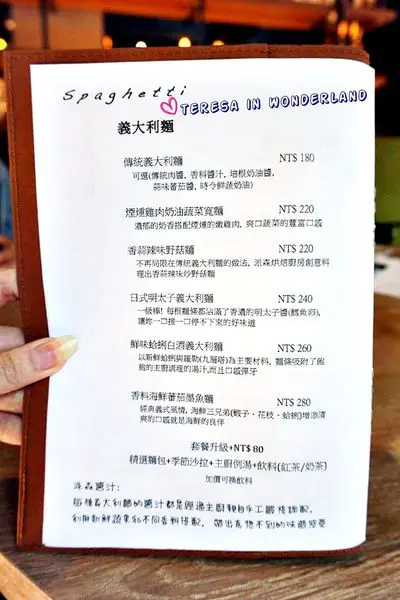 Spaghetti
TERESA IN WONDERLAND
義大利麵
傳統義大利麵 NT$ 180
可選(傳統肉醬, 香料醬汁, 培根奶油醬,
蒜味蕃茄醬, 時令鮮蔬奶油)
煙燻雞肉奶油蔬菜寬麵 NT$ 220
濃郁的奶香搭配煙燻的嫩雞肉, 爽口蔬菜的豐富口感
香蒜辣味野菇麵 NT$ 220
不再局限在傳統義大利麵的做法, 派森烘焙廚房創意料
理出香蒜辣味炒野菇麵
日式明太子義大利麵 NT$ 240
一級棒! 每根麵條都沾滿了香濃的明太子醬(鱈魚卵),
讓妳一口接一口停不下來的好味道
鮮味蛤蜊白酒義大利麵 NT$ 260
以新鮮蛤蜊與羅勒(九層塔)為主要材料, 麵條吸附了飽
飽的主廚調理的湯汁,而且口感彈牙
香料海鮮蕃茄墨魚麵 NT$ 280
經典義式風情, 海鮮三兄弟(蝦子、花枝、蛤蜊)增添清
爽的口感就是海鮮的良伴
套餐升級+NT$ 80
精選麵包+季節沙拉+主廚例湯+飲料(紅茶/奶茶)
加價可換飲料
派森醬汁:
每種義大利麵的醬汁都是經過主廚親自手工嚴格調配,
利用新鮮蔬果和不同香料搭配,